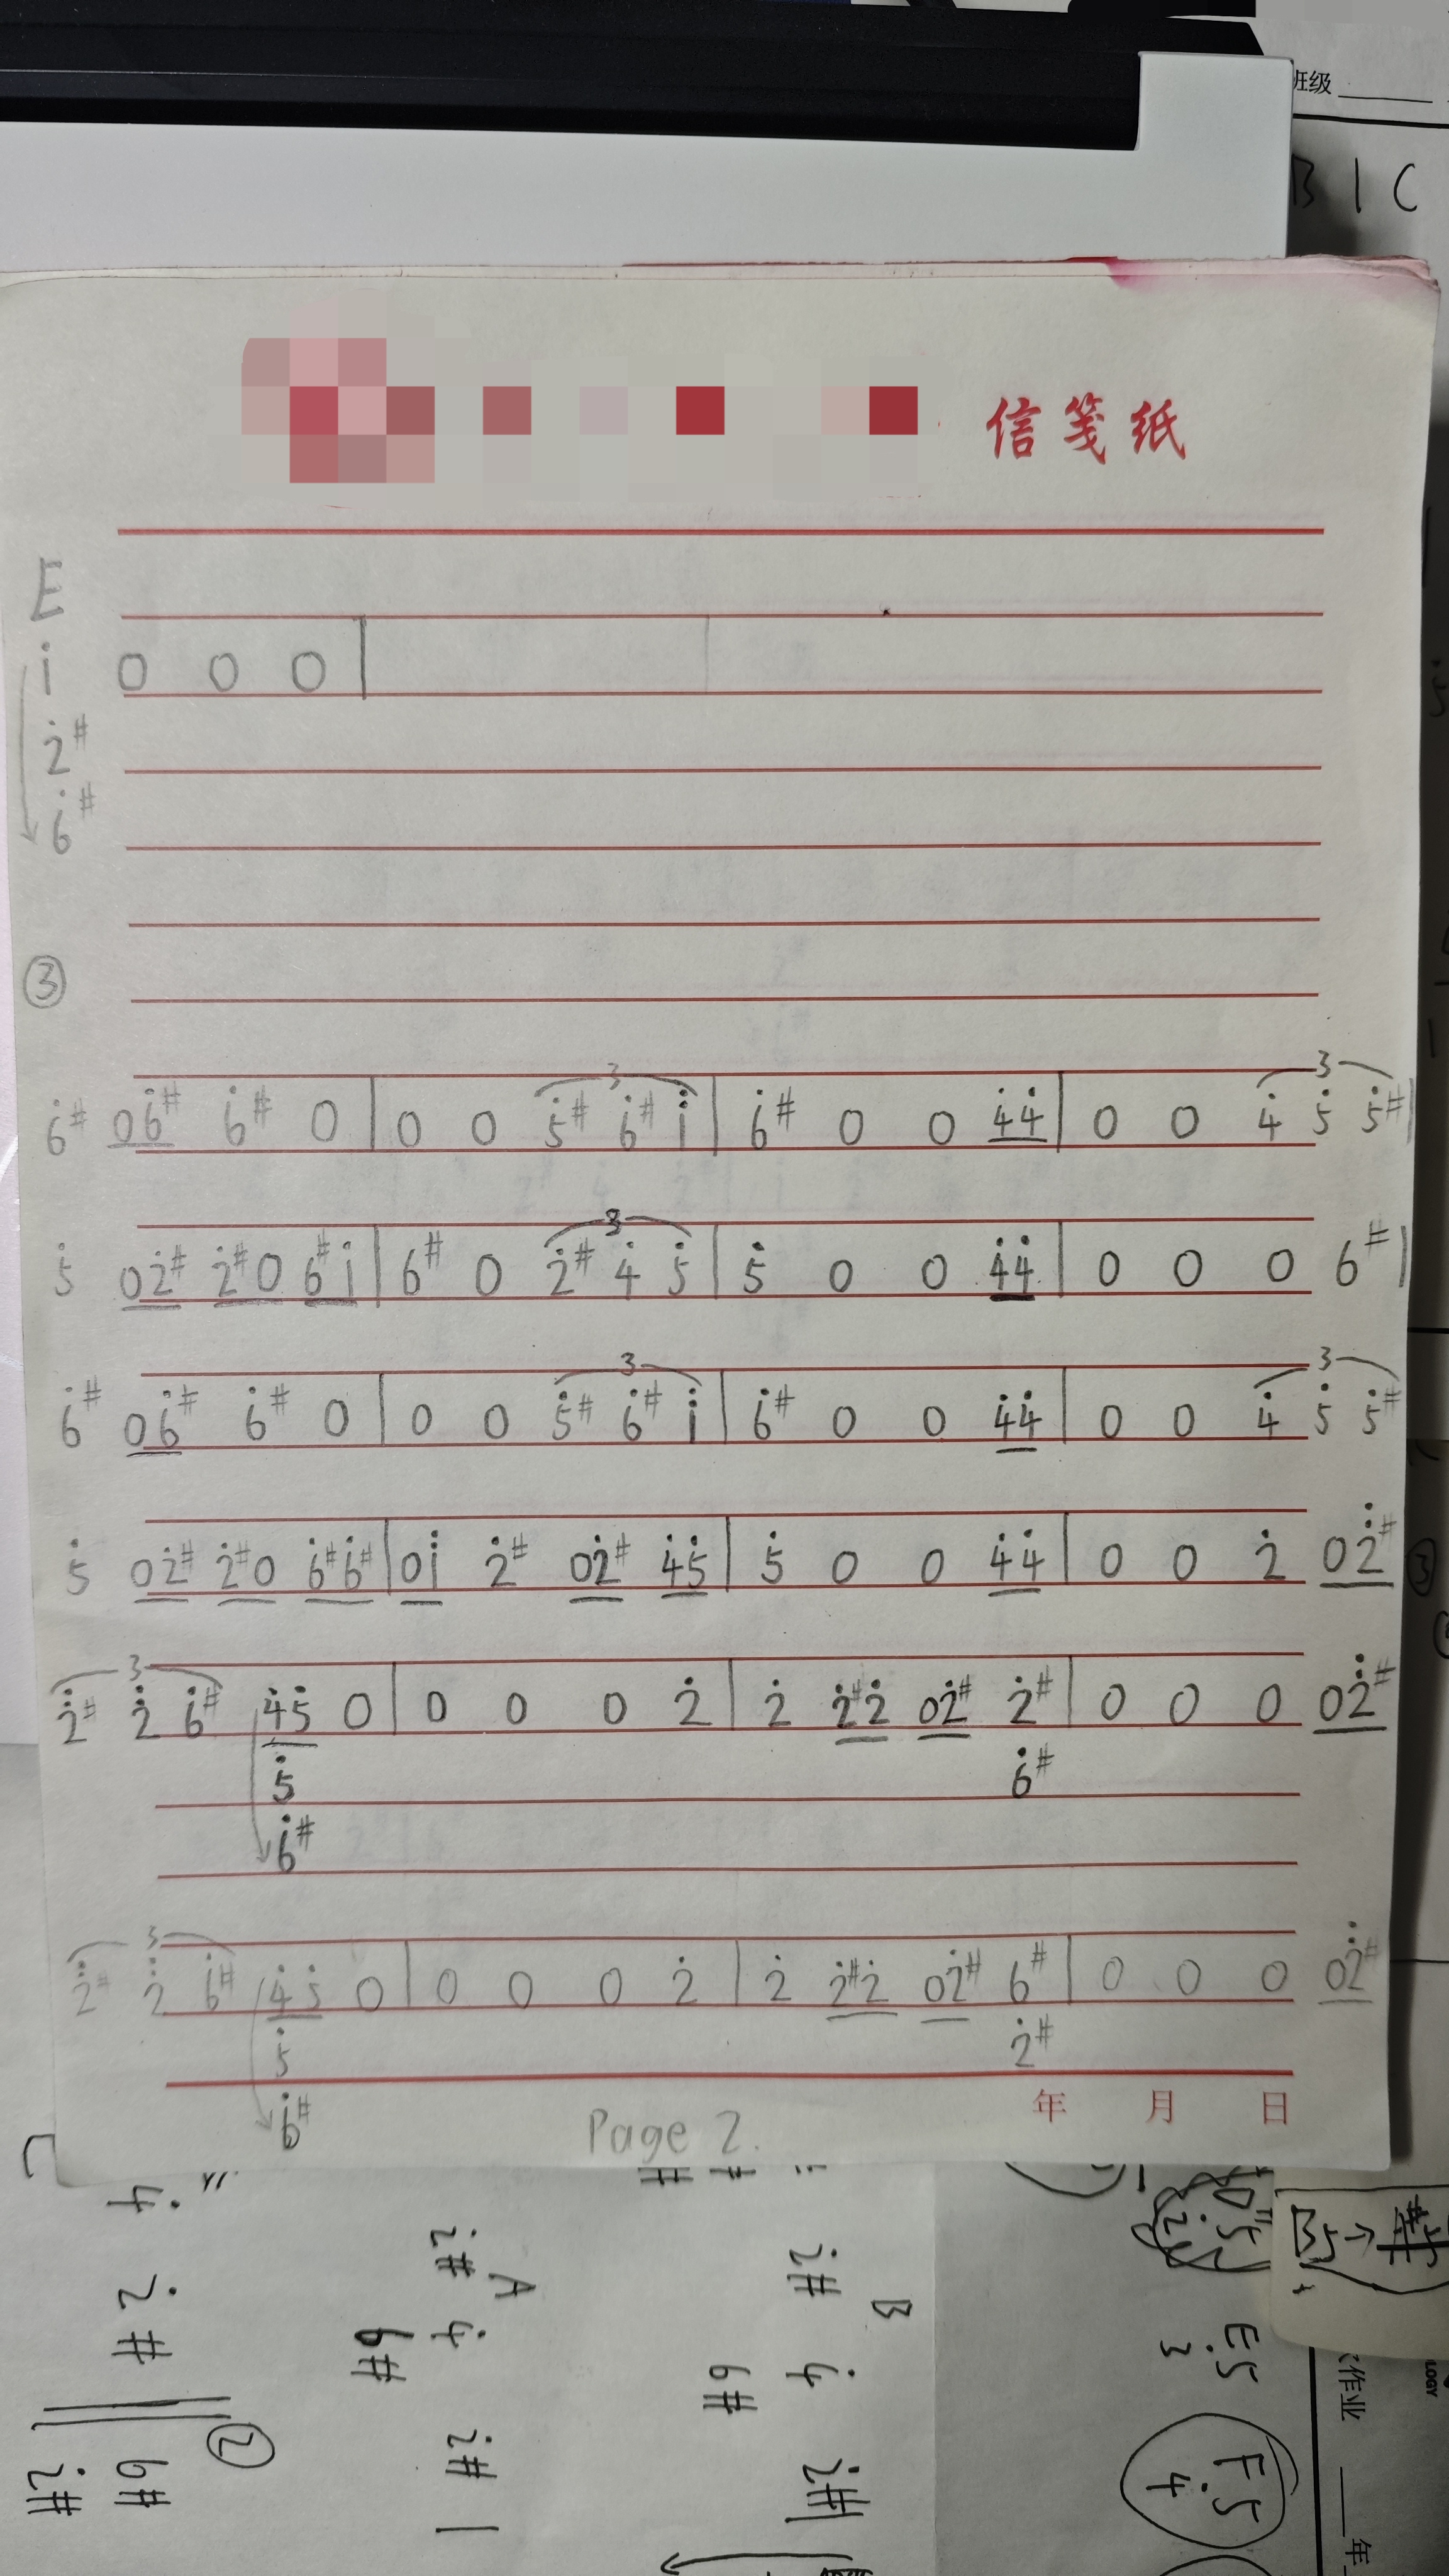 班级
B 1 C
信笺纸
E
i 0 0 0 |
2̇#
6̇#
③
6̇# 06̇# 6̇# 0 | 0 0 3 5̇# 6̇# i̇ | 6̇# 0 0 4̇4̇ | 0 0 3 4̇ 5̇ 5̇# |
5̇ 02̇# 2̇#0 6#i | 6# 0 3 2̇# 4̇ 5̇ | 5̇ 0 0 4̇4̇ | 0 0 0 6# |
6̇# 06̇# 6̇# 0 | 0 0 3 5̇# 6̇# i̇ | 6̇# 0 0 4̇4̇ | 0 0 3 4̇ 5̇ 5̇#
5̇ 02̇# 2̇#0 6̇#6̇# | 0i 2̇# 02̇# 4̇5̇ | 5̇ 0 0 4̇4̇ | 0 0 2̇ 02̈#
3 2̈# 2̈ 6̇# 4̇5̇ 0 | 0 0 0 2̇ | 2̇ 2̇#2̇ 02̇# 2̇# | 0 0 0 02̈#
5̇ 6̇#
6̇#
3 2̈# 2̈ 6̇# 4̇5̇ 0 | 0 0 0 2̇ | 2̇ 2̇#2̇ 02̇# 6# | 0 0 0 02̈#
5̇ 2̇#
年 月 日
6̇#
Page 2.
4̇ 2̇# ②
6# 2̇#
2̇# A 4̇
6# 2̇# |
2̇# B 4̇
6# 2̇# |
B5 → #5
E5
3
F5
4
作业
年